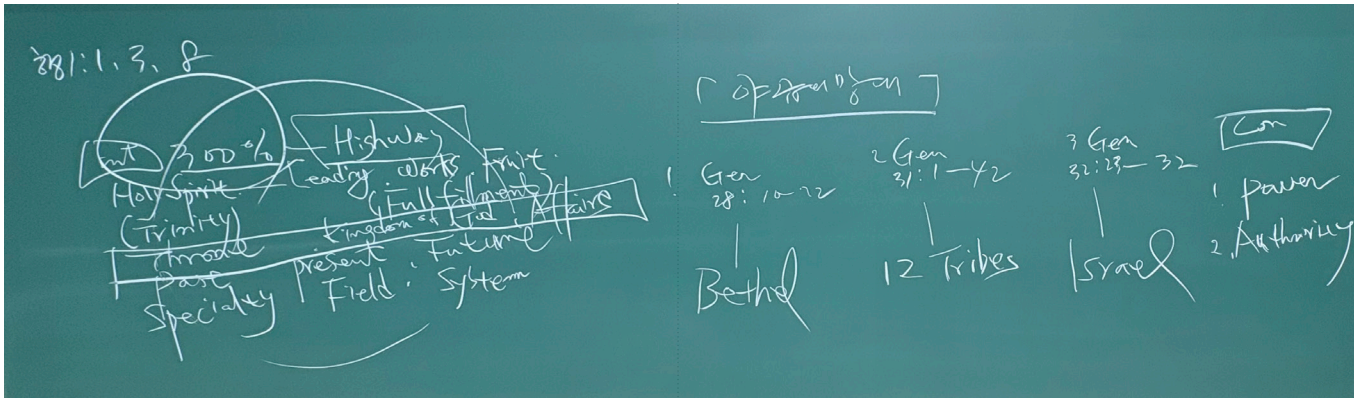 행1:1, 3, 8
Int 300% - Highway
Holy Spirit. - Leading. Works Fruit.
(Trinity) (Fullfillment)
throne kingdom of God. Affairs
Past present Future
Specialty Field. System
1. Gen 28:10-22
Bethel
2 Gen 31:1-42
12 Tribes
3 Gen 32:23-32
Israel
Con
1. power
2. Authority